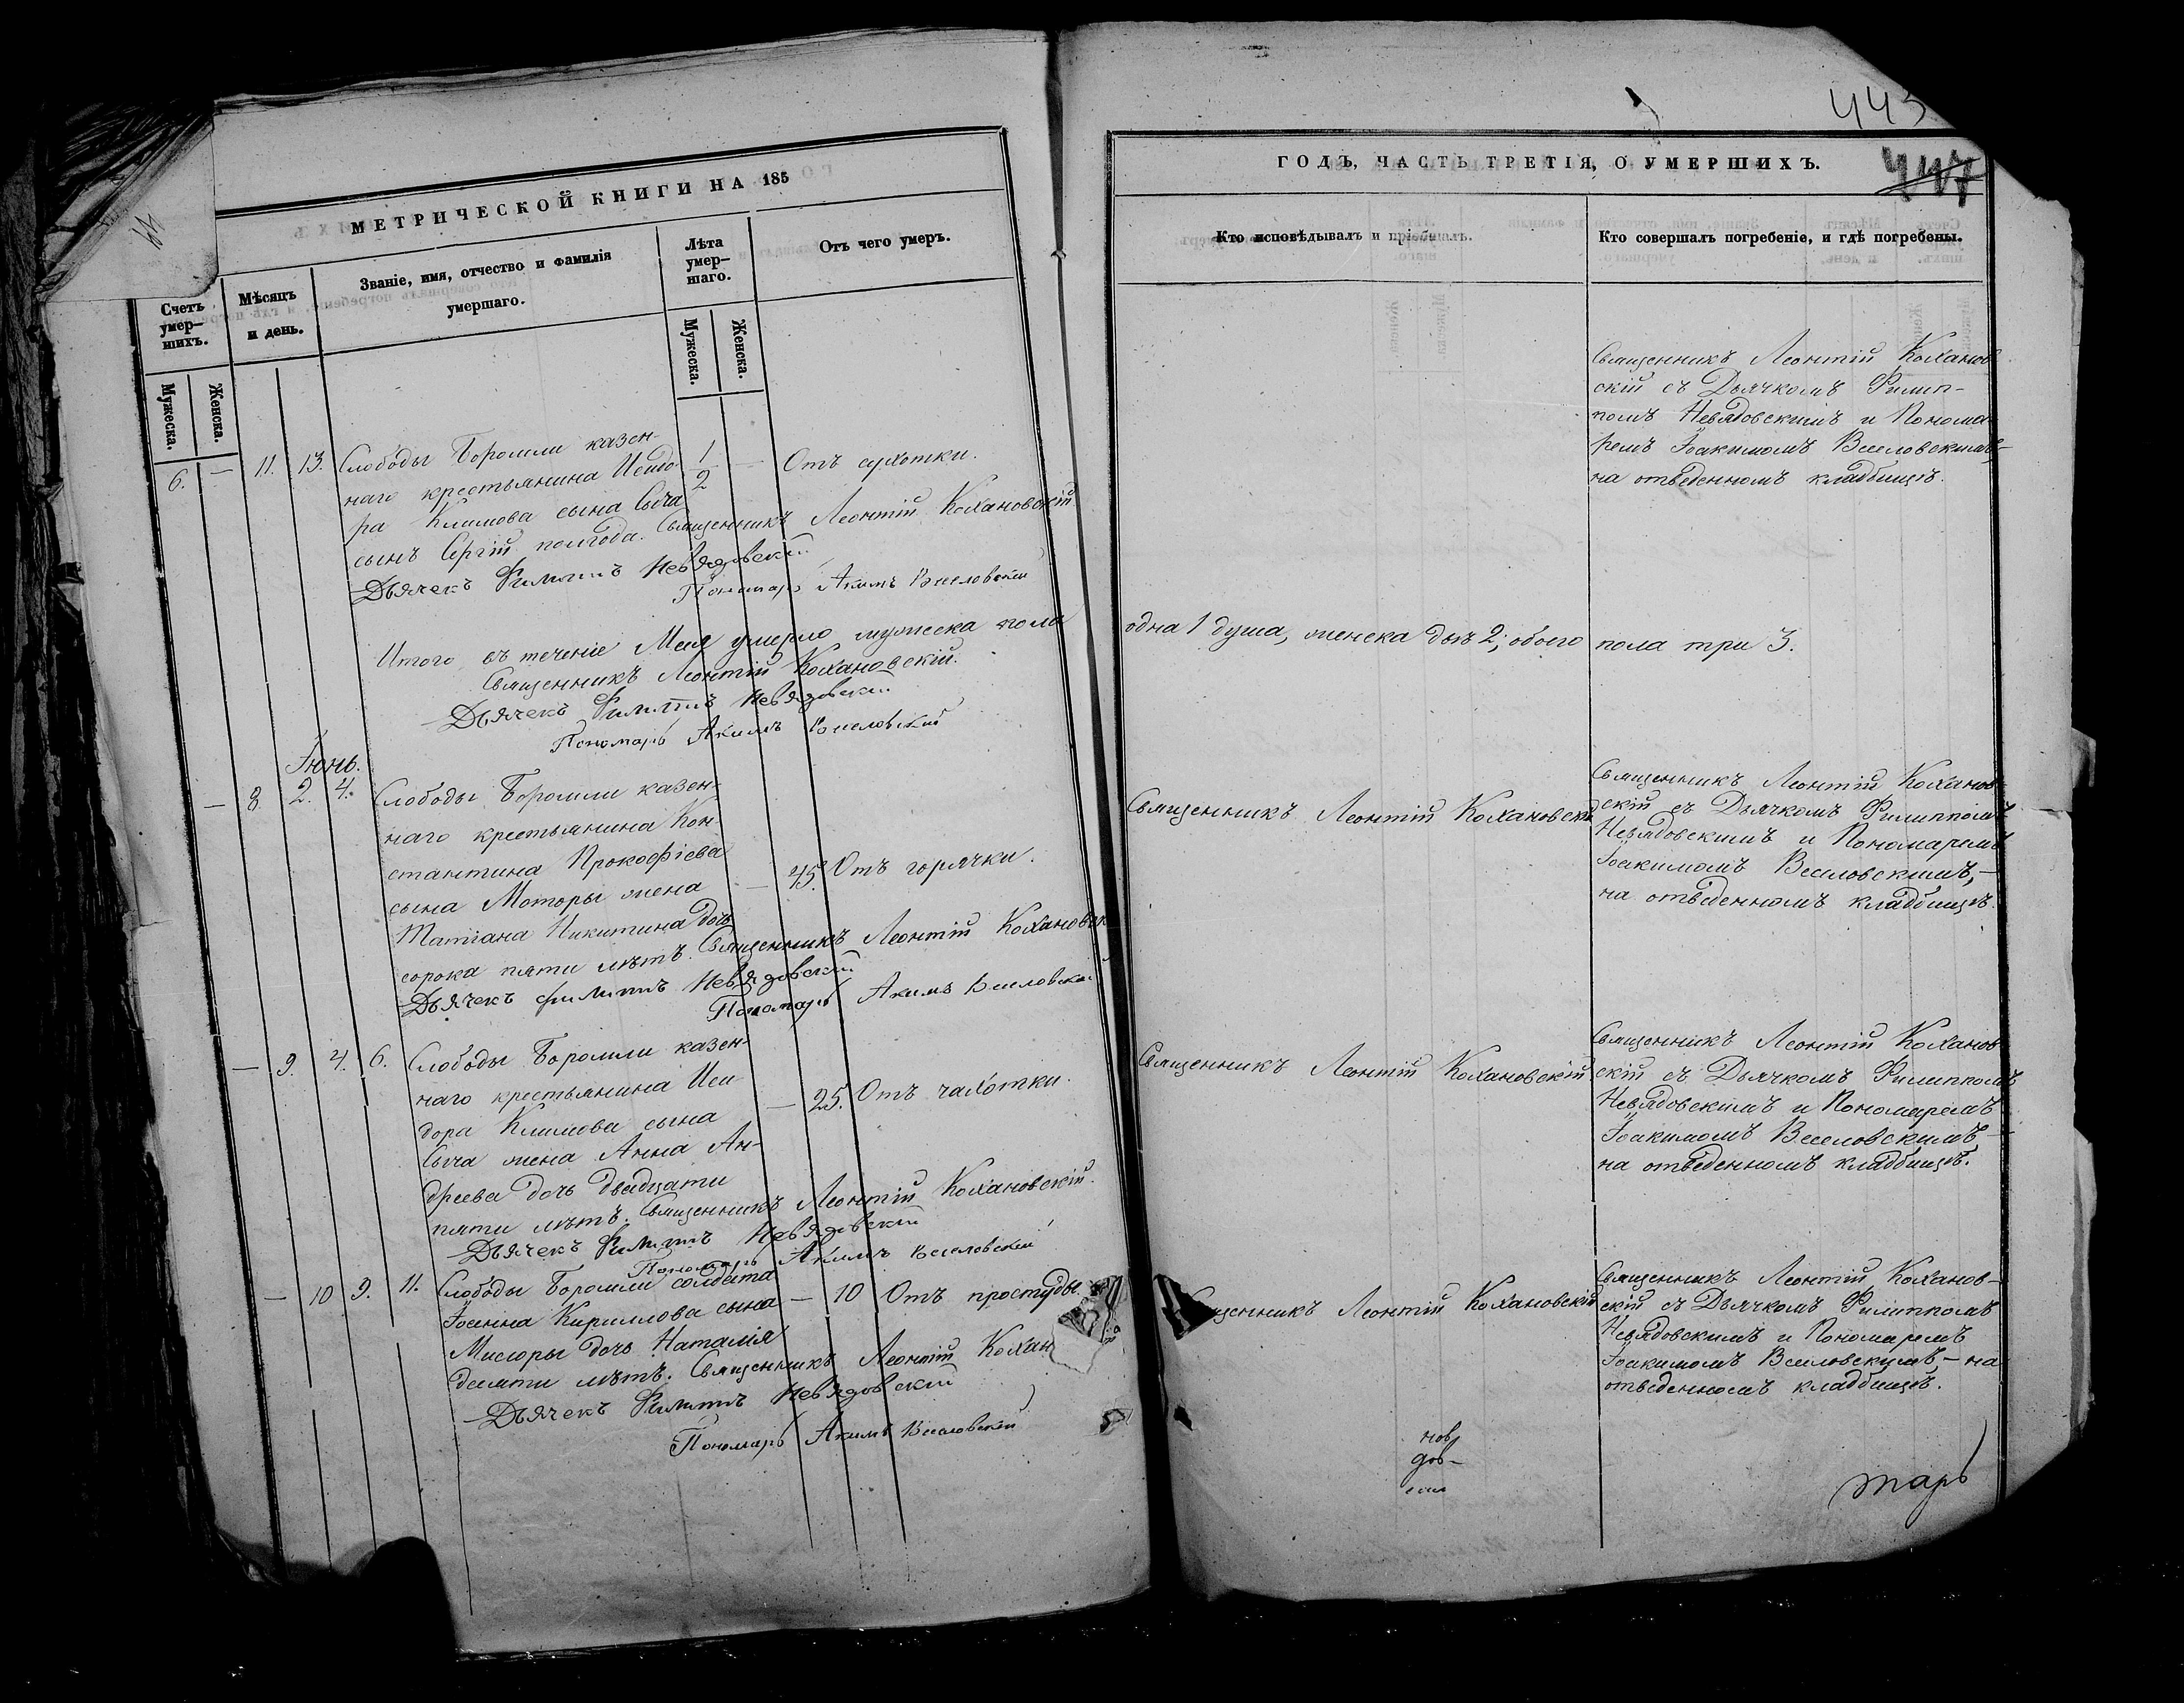 МЕТРИЧЕСКОЙ КНИГИ НА 185
Счетъ умер-шихъ.
Мужеска.
Женска.
Мѣсяцъ и день.
Званіе, имя, отчество и фамилія
умершаго.
Лѣта умер-шаго.
Мужеска.
Женска.
Отъ чего умеръ.
6. — 11. 13. Слободы Боромли казен-
наго крестьянина Исидо-
ра Климова сына Сыча
сынъ Сергій полгода.
1/2 — Отъ сухотки.
Священникъ Леонтій Кохановскій
Дьячекъ Филиппъ Невядовскій
Пономарь Акимъ Веселовскій
Итого въ теченіе Мая умерло мужеска пола
Священникъ Леонтій Кохановскій.
Дьячекъ Филиппъ Невядовскій
Пономарь Акимъ Веселовскій
Іюнь.
— 8 2. 4. Слободы Боромли казен-
наго крестьянина Кон-
стантина Прокофіева
сына Моторы жена
Татіана Никитина дочь
сорока пяти лѣтъ.
— 45. Отъ горячки.
Священникъ Леонтій Кохановск
Дьячекъ Филиппъ Невядовскій
Пономарь Акимъ Веселовскій
— 9. 4. 6. Слободы Боромли казен-
наго крестьянина Иси-
дора Климова сына
Сыча жена Анна Ан-
дреева дочь двадцати
пяти лѣтъ.
— 25. Отъ чахотки.
Священникъ Леонтій Кохановскій.
Дьячекъ Филиппъ Невядовскій
Пономарь Акимъ Веселовскій
— 10 9. 11. Слободы Боромли солдата
Іоанна Кириллова сына
Мисюры дочь Наталія
десяти лѣтъ.
— 10 Отъ простуды.
Священникъ Леонтій Кохан
Дьячекъ Филиппъ Невядовскій
Пономарь Акимъ Веселовскій
443
447
ГОДЪ, ЧАСТЬ ТРЕТІЯ, О УМЕРШИХЪ.
Кто исповѣдывалъ и пріобщалъ.
Кто совершалъ погребеніе, и гдѣ погребены.
Священникъ Леонтій Коханов
скій съ Дьячкомъ Филип-
помъ Невядовскимъ и Понома-
ремъ Іоакимомъ Веселовскимъ,-
на отведенномъ кладбищѣ.
одна 1 душа, женска двѣ 2; обоего пола три 3.
Священникъ Леонтій Кохановскій
Священникъ Леонтій Коханов-
скій съ Дьячкомъ Филиппомъ
Невядовскимъ и Пономаремъ
Іоакимомъ Веселовскимъ,-
на отведенномъ кладбищѣ.
Священникъ Леонтій Кохановскій
Священникъ Леонтій Коханов-
скій съ Дьячкомъ Филиппомъ
Невядовскимъ и Пономаремъ
Іоакимомъ Веселовскимъ,-
на отведенномъ кладбищѣ.
щенникъ Леонтій Кохановскій
Священникъ Леонтій Коханов-
скій съ Дьячкомъ Филиппомъ
Невядовскимъ и Пономаремъ
Іоакимомъ Веселовскимъ,- на
отведенномъ кладбищѣ.
нов
дов-
марь